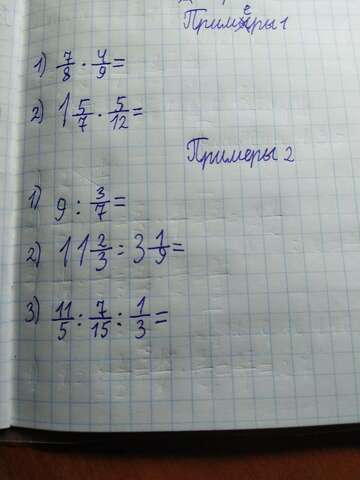 Примеры 1
1) 7/8 · 4/9 =
2) 1 5/7 · 5/12 =
Примеры 2
1) 9 : 3/7 =
2) 11 2/3 : 3 1/9 =
3) 11/5 : 7/15 : 1/3 =